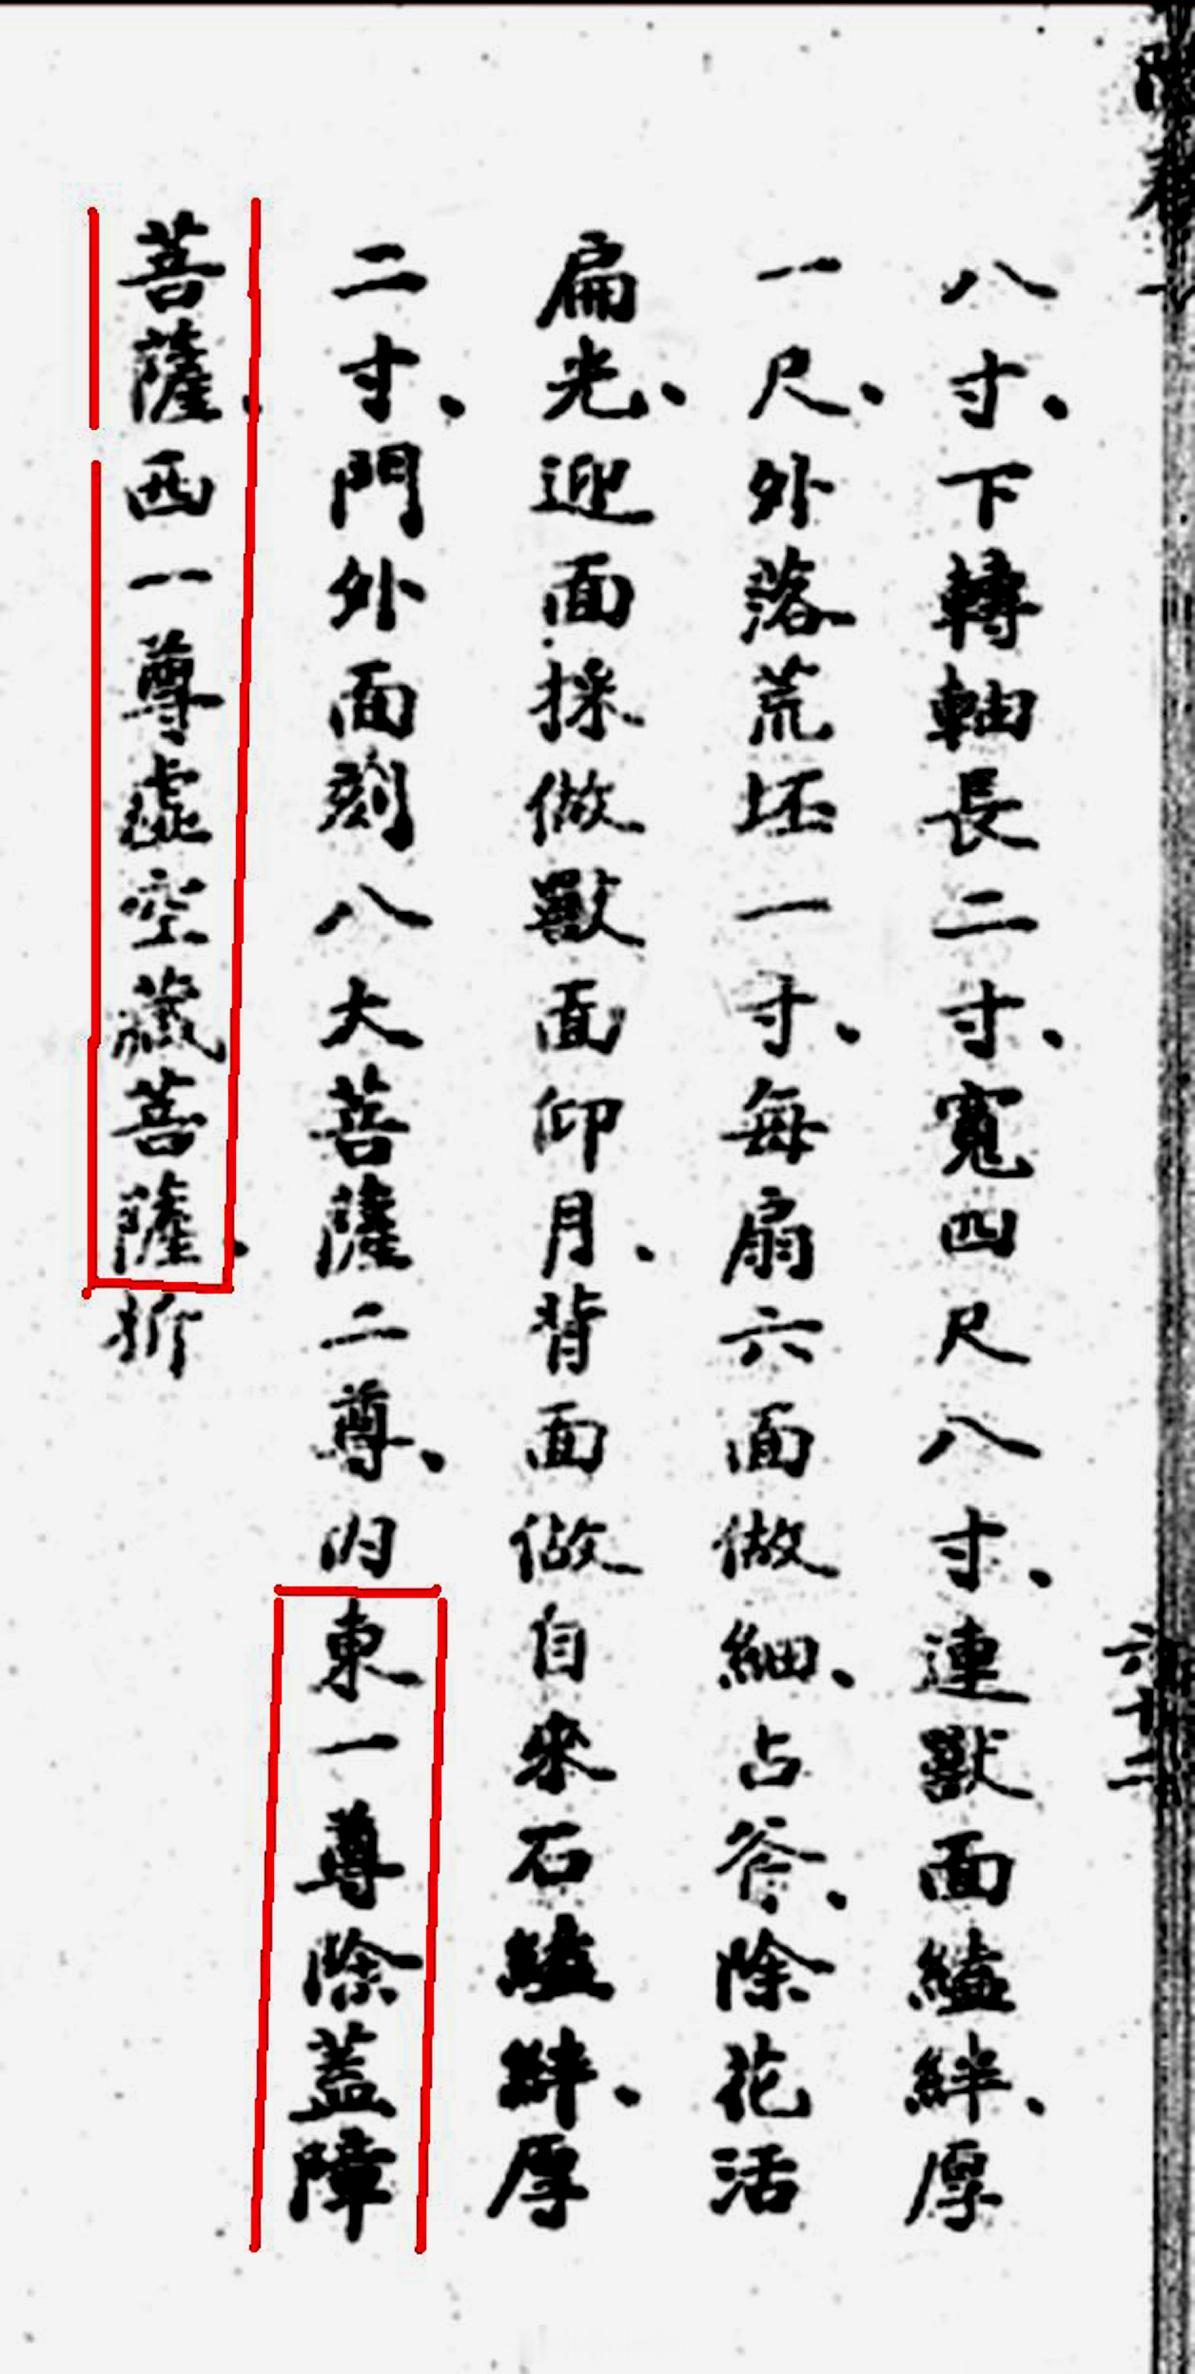 八寸、下轉軸長二寸、寬四尺八寸、連獸面縕絆、厚
一尺、外落荒坯一寸、每扇六面做細、占斧、除花活
扁光、迎面採做獸面仰月、背面做自來石縕絆、厚
二寸、門外面刻八大菩薩二尊、内東一尊除蓋障
菩薩、西一尊虛空藏菩薩、折